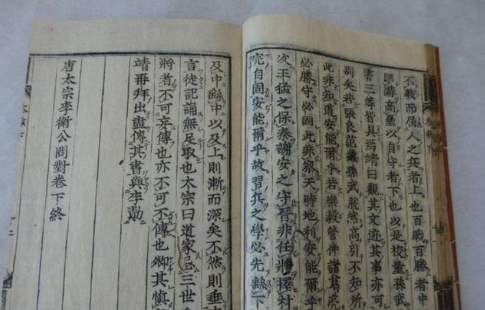 不戰而屈人之兵者上也百戰百勝者中
深溝高壘以自守者下也以是校量孫武
書三等皆具焉靖曰觀其文迹其事亦可
別矣若張良范蠡孫武脫然高引不知所
此非知道安能爾乎若樂毅管仲諸葛亮
必勝守必固此非察天時地利安能爾乎
次王猛之保秦謝安之守晉非任將擇材
完自固安能爾乎故習兵之學必先繇下
及中繇中以及上則漸而深矣不然則垂
言徒記誦無足取也太宗曰道家忌三世
將者不可妄傳也亦不可不傳也卿其慎
靖再拜出盡傳其書與李勣
唐太宗李衛公問對卷下終